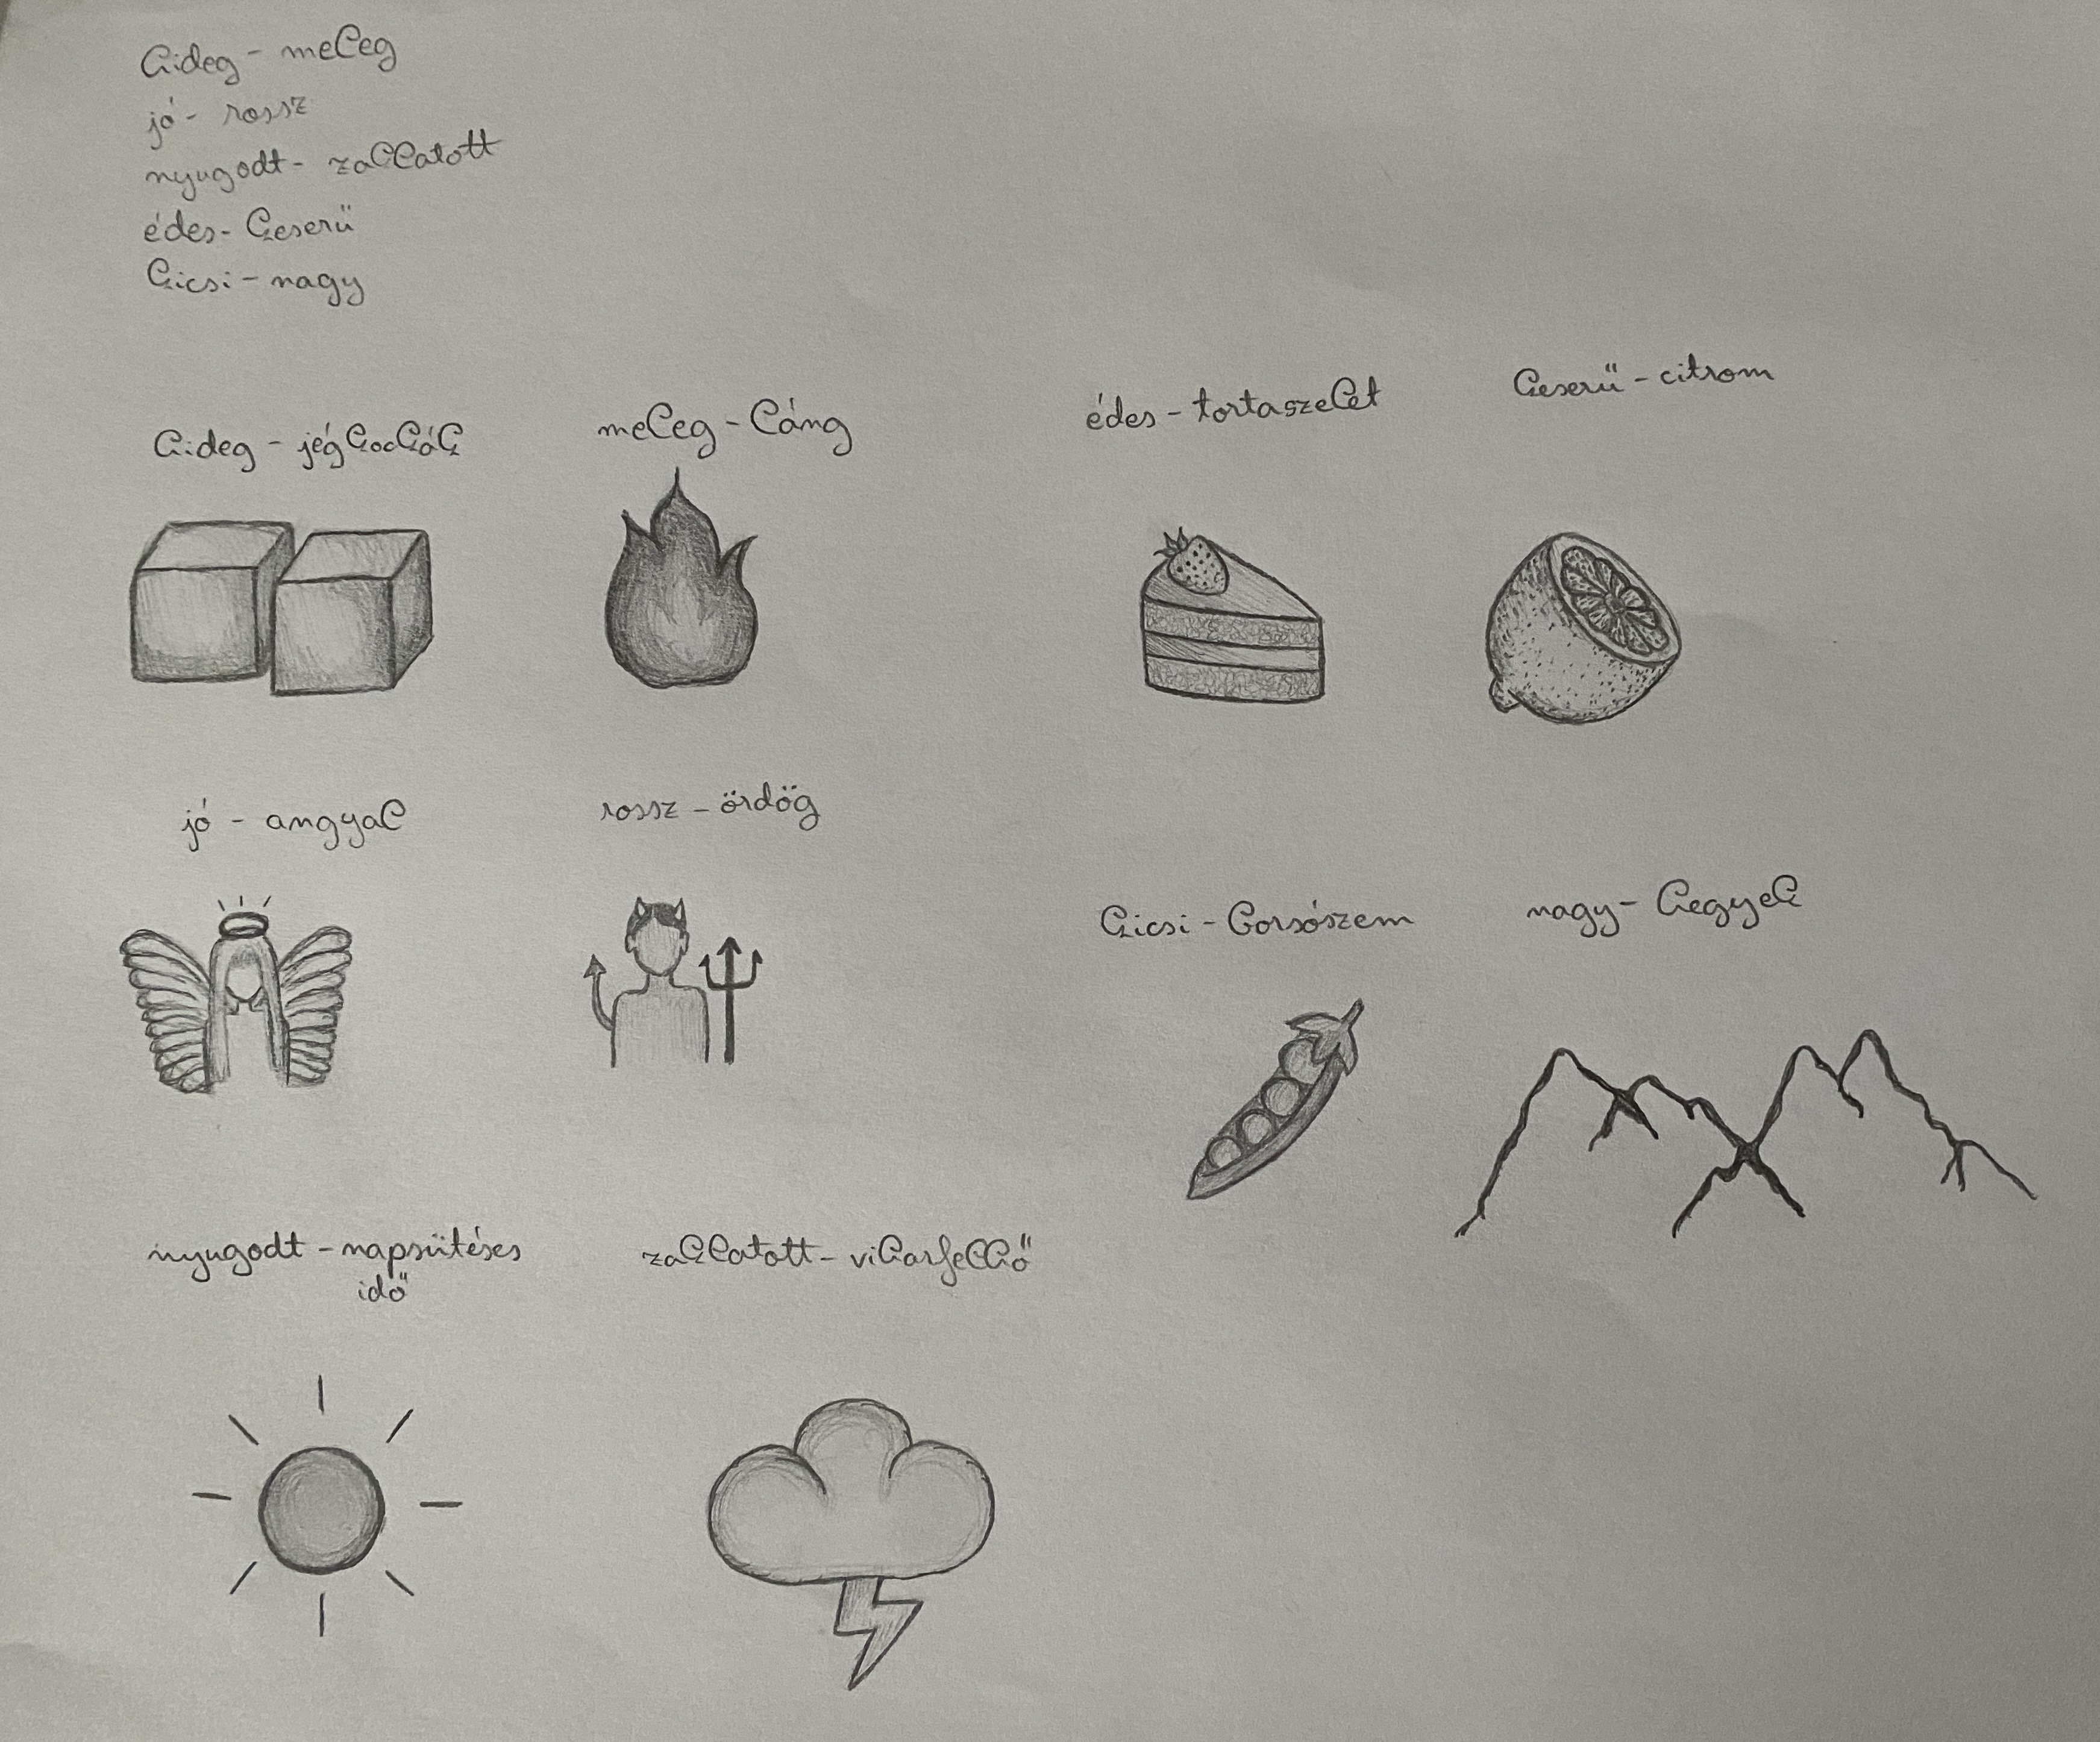 hideg - meleg
jó - rossz
nyugodt - zaklatott
édes - keserű
kicsi - nagy
hideg - jégkockák
meleg - láng
édes - tortaszelet
keserű - citrom
jó - angyal
rossz - ördög
kicsi - borsószem
nagy - hegyek
nyugodt - napsütéses
idő
zaklatott - viharfelhő